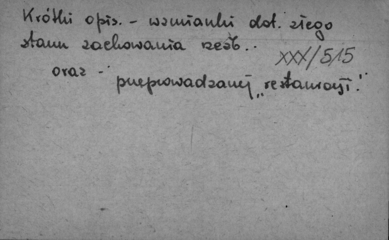 Krótki opis. - wzmianki dot. złego
stanu zachowania rzeźb..
XXX/515
oraz - przeprowadzanej „restauracji."